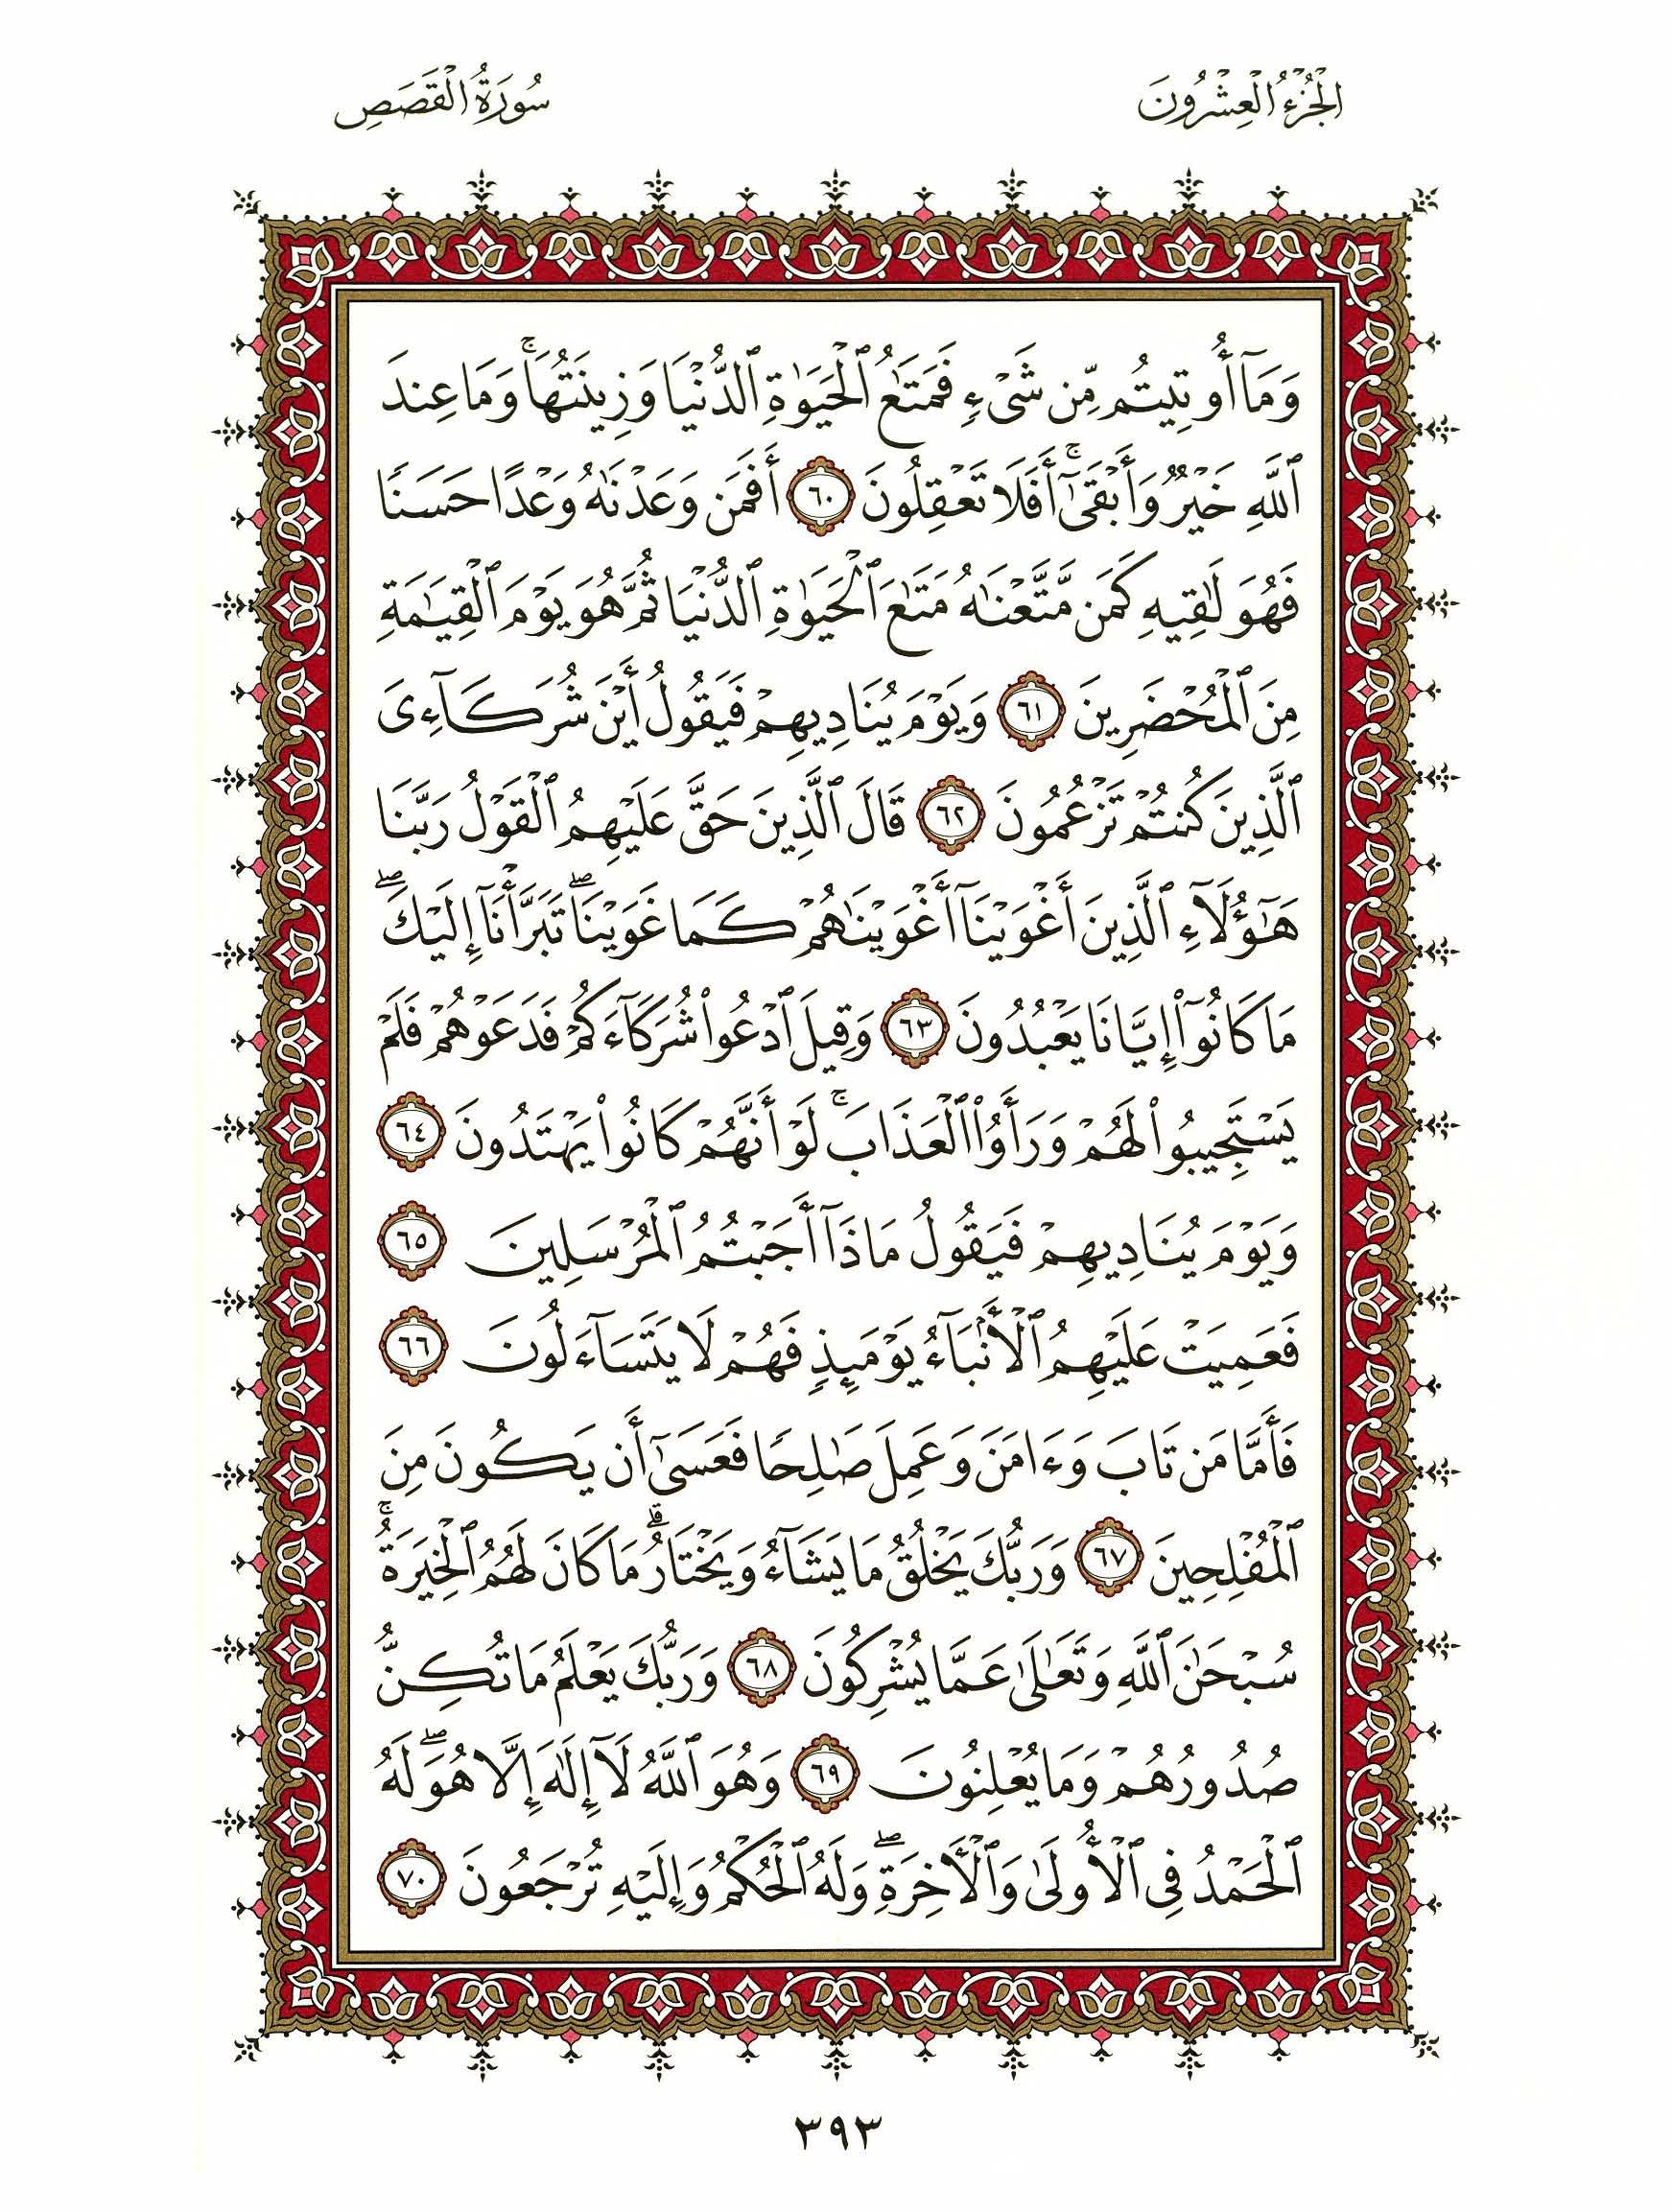 الجُزْءُ العِشْرُونَ
سُورَةُ القَصَصِ
وَمَآ أُوتِيتُم مِّن شَىْءٍ فَمَتَٰعُ ٱلْحَيَوٰةِ ٱلدُّنْيَا وَزِينَتُهَا ۚ وَمَا عِندَ
ٱللَّهِ خَيْرٌ وَأَبْقَىٰٓ ۚ أَفَلَا تَعْقِلُونَ ٦٠ أَفَمَن وَعَدْنَٰهُ وَعْدًا حَسَنًا
فَهُوَ لَٰقِيهِ كَمَن مَّتَّعْنَٰهُ مَتَٰعَ ٱلْحَيَوٰةِ ٱلدُّنْيَا ثُمَّ هُوَ يَوْمَ ٱلْقِيَٰمَةِ
مِنَ ٱلْمُحْضَرِينَ ٦١ وَيَوْمَ يُنَادِيهِمْ فَيَقُولُ أَيْنَ شُرَكَآءِىَ
ٱلَّذِينَ كُنتُمْ تَزْعُمُونَ ٦٢ قَالَ ٱلَّذِينَ حَقَّ عَلَيْهِمُ ٱلْقَوْلُ رَبَّنَا
هَٰٓؤُلَآءِ ٱلَّذِينَ أَغْوَيْنَآ أَغْوَيْنَٰهُمْ كَمَا غَوَيْنَا ۖ تَبَرَّأْنَآ إِلَيْكَ ۖ
مَا كَانُوٓا۟ إِيَّانَا يَعْبُدُونَ ٦٣ وَقِيلَ ٱدْعُوا۟ شُرَكَآءَكُمْ فَدَعَوْهُمْ فَلَمْ
يَسْتَجِيبُوا۟ لَهُمْ وَرَأَوُا۟ ٱلْعَذَابَ ۚ لَوْ أَنَّهُمْ كَانُوا۟ يَهْتَدُونَ ٦٤
وَيَوْمَ يُنَادِيهِمْ فَيَقُولُ مَاذَآ أَجَبْتُمُ ٱلْمُرْسَلِينَ ٦٥
فَعَمِيَتْ عَلَيْهِمُ ٱلْأَنۢبَآءُ يَوْمَئِذٍ فَهُمْ لَا يَتَسَآءَلُونَ ٦٦
فَأَمَّا مَن تَابَ وَءَامَنَ وَعَمِلَ صَٰلِحًا فَعَسَىٰٓ أَن يَكُونَ مِنَ
ٱلْمُفْلِحِينَ ٦٧ وَرَبُّكَ يَخْلُقُ مَا يَشَآءُ وَيَخْتَارُ ۗ مَا كَانَ لَهُمُ ٱلْخِيَرَةُ ۚ
سُبْحَٰنَ ٱللَّهِ وَتَعَٰلَىٰ عَمَّا يُشْرِكُونَ ٦٨ وَرَبُّكَ يَعْلَمُ مَا تُكِنُّ
صُدُورُهُمْ وَمَا يُعْلِنُونَ ٦٩ وَهُوَ ٱللَّهُ لَآ إِلَٰهَ إِلَّا هُوَ ۖ لَهُ
ٱلْحَمْدُ فِى ٱلْأُولَىٰ وَٱلْءَاخِرَةِ ۖ وَلَهُ ٱلْحُكْمُ وَإِلَيْهِ تُرْجَعُونَ ٧٠
٣٩٣